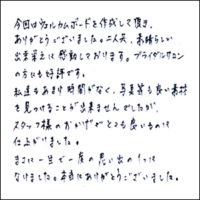 今回はウェルカムボードを作成して頂き、
ありがとうございました。二人共、素晴らしい
出来栄えに感動しております。ブライダルサロン
の方にも好評です。
私達もあまり時間がなく、写真等も良い素材
を見つけることが出来ませんでしたが、
スタッフ様のおかげでとても良いものに
仕上がりました。
まさに一生で一度の思い出の1つに
なりました。本当にありがとうございました。